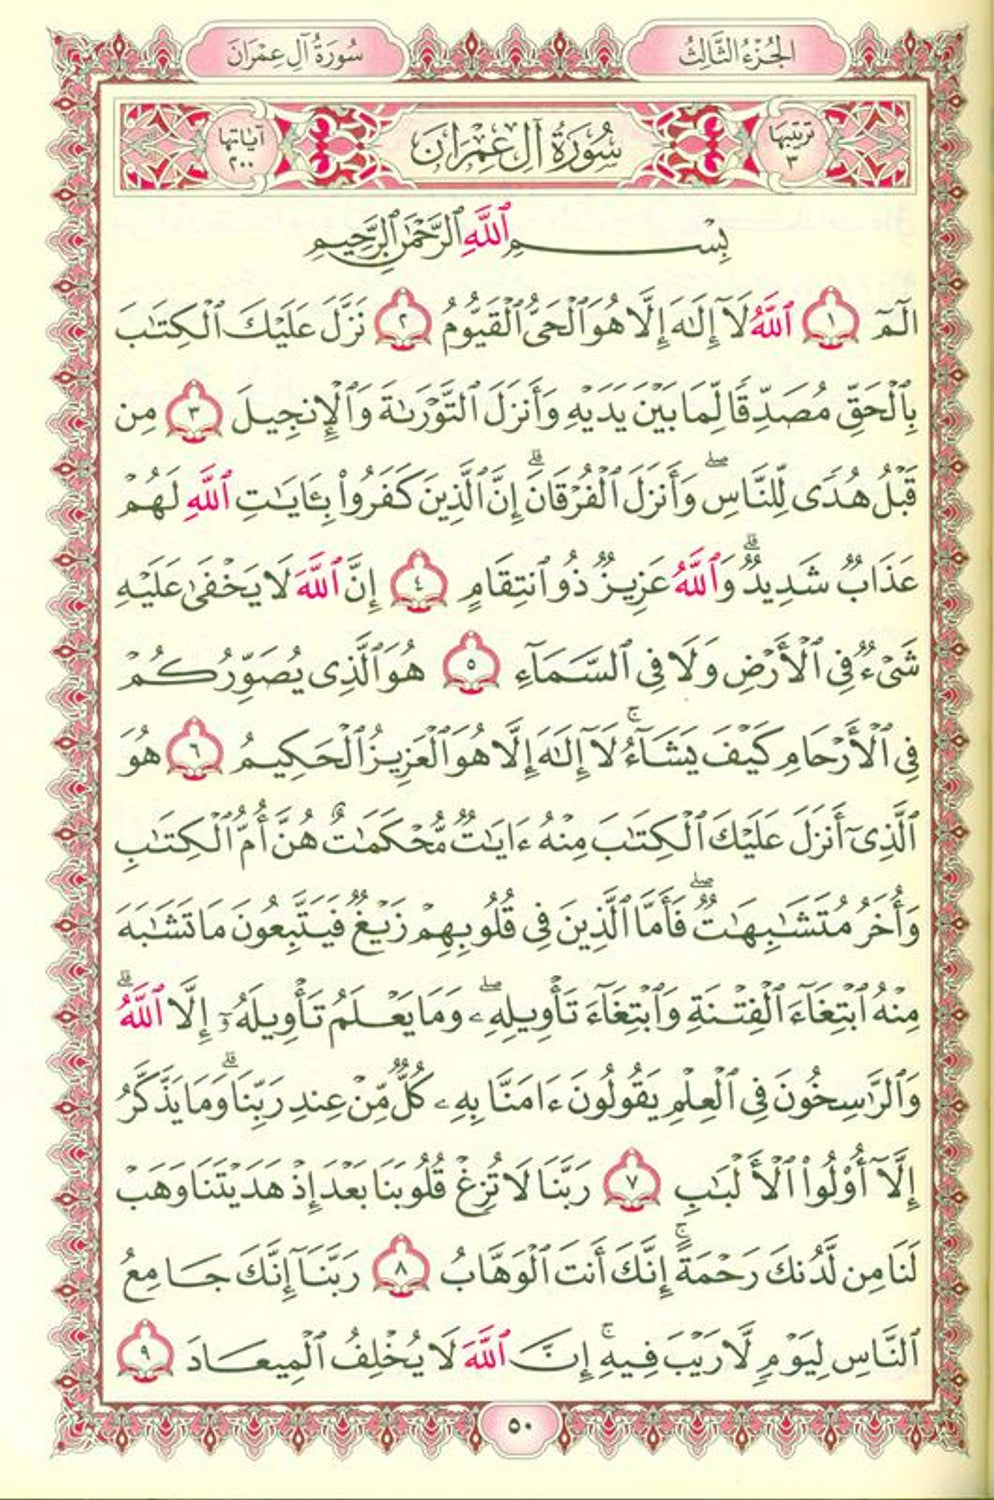 الجُزْءُ الثَّالِثُ
سُورَةُ آلِ عِمْرَانَ
ترتيبها ٣
سُورَةُ آلِ عِمْرَان
آياتها ٢٠٠
بِسْمِ ٱللَّهِ ٱلرَّحْمَٰنِ ٱلرَّحِيمِ
الٓمٓ ١ ٱللَّهُ لَآ إِلَٰهَ إِلَّا هُوَ ٱلْحَىُّ ٱلْقَيُّومُ ٢ نَزَّلَ عَلَيْكَ ٱلْكِتَٰبَ
بِٱلْحَقِّ مُصَدِّقًا لِّمَا بَيْنَ يَدَيْهِ وَأَنزَلَ ٱلتَّوْرَىٰةَ وَٱلْإِنجِيلَ ٣ مِن
قَبْلُ هُدًى لِّلنَّاسِ ۖ وَأَنزَلَ ٱلْفُرْقَانَ ۗ إِنَّ ٱلَّذِينَ كَفَرُوا۟ بِـَٔايَٰتِ ٱللَّهِ لَهُمْ
عَذَابٌ شَدِيدٌ ۗ وَٱللَّهُ عَزِيزٌ ذُو ٱنتِقَامٍ ٤ إِنَّ ٱللَّهَ لَا يَخْفَىٰ عَلَيْهِ
شَىْءٌ فِى ٱلْأَرْضِ وَلَا فِى ٱلسَّمَآءِ ٥ هُوَ ٱلَّذِى يُصَوِّرُكُمْ
فِى ٱلْأَرْحَامِ كَيْفَ يَشَآءُ ۚ لَآ إِلَٰهَ إِلَّا هُوَ ٱلْعَزِيزُ ٱلْحَكِيمُ ٦ هُوَ
ٱلَّذِىٓ أَنزَلَ عَلَيْكَ ٱلْكِتَٰبَ مِنْهُ ءَايَٰتٌ مُّحْكَمَٰتٌ هُنَّ أُمُّ ٱلْكِتَٰبِ
وَأُخَرُ مُتَشَٰبِهَٰتٌ ۖ فَأَمَّا ٱلَّذِينَ فِى قُلُوبِهِمْ زَيْغٌ فَيَتَّبِعُونَ مَا تَشَٰبَهَ
مِنْهُ ٱبْتِغَآءَ ٱلْفِتْنَةِ وَٱبْتِغَآءَ تَأْوِيلِهِۦ ۖ وَمَا يَعْلَمُ تَأْوِيلَهُۥٓ إِلَّا ٱللَّهُ ۗ
وَٱلرَّٰسِخُونَ فِى ٱلْعِلْمِ يَقُولُونَ ءَامَنَّا بِهِۦ كُلٌّ مِّنْ عِندِ رَبِّنَا ۗ وَمَا يَذَّكَّرُ
إِلَّآ أُو۟لُوا۟ ٱلْأَلْبَٰبِ ٧ رَبَّنَا لَا تُزِغْ قُلُوبَنَا بَعْدَ إِذْ هَدَيْتَنَا وَهَبْ
لَنَا مِن لَّدُنكَ رَحْمَةً ۚ إِنَّكَ أَنتَ ٱلْوَهَّابُ ٨ رَبَّنَآ إِنَّكَ جَامِعُ
ٱلنَّاسِ لِيَوْمٍ لَّا رَيْبَ فِيهِ ۚ إِنَّ ٱللَّهَ لَا يُخْلِفُ ٱلْمِيعَادَ ٩
٥٠